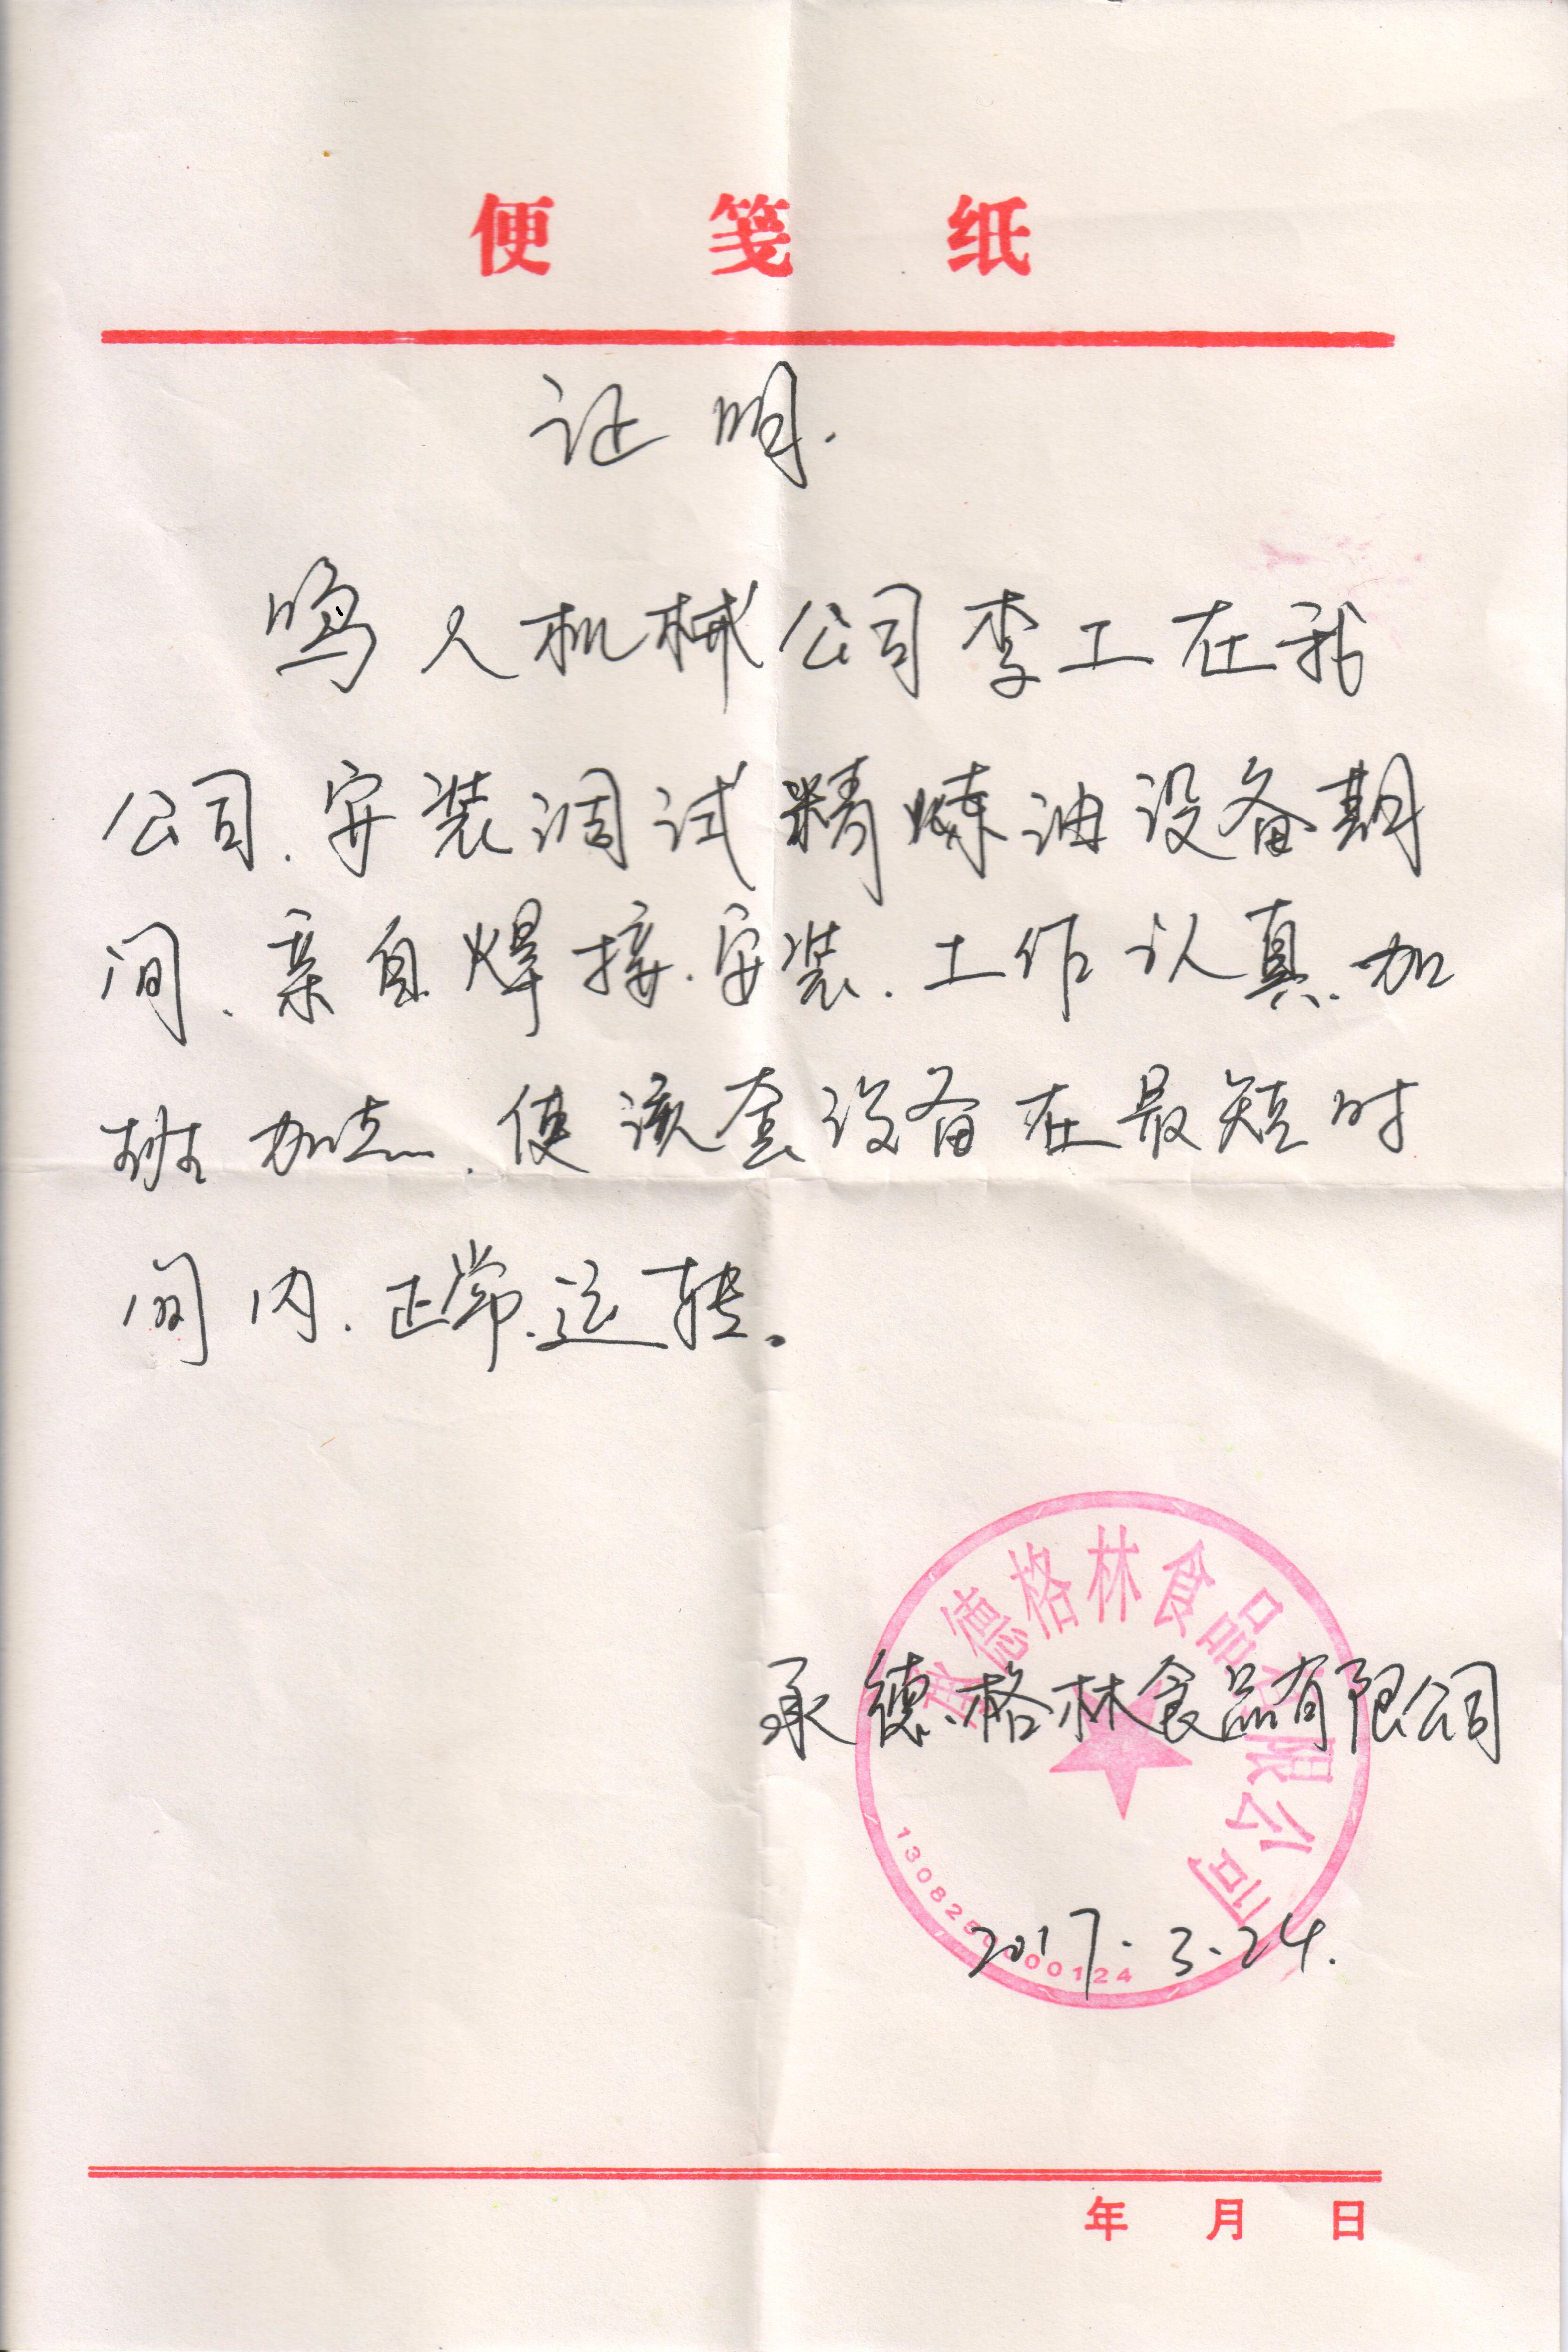 便笺纸
证明.
鸣人机械公司李工在我
公司.安装调试精炼油设备期
间.亲自焊接.安装.工作认真.加
班加点.使该套设备在最短时
间内.正常.运转。
承德格林食品有限公司
承德格林食品有限公司
2017.3.24.
1308250000124
年 月 日